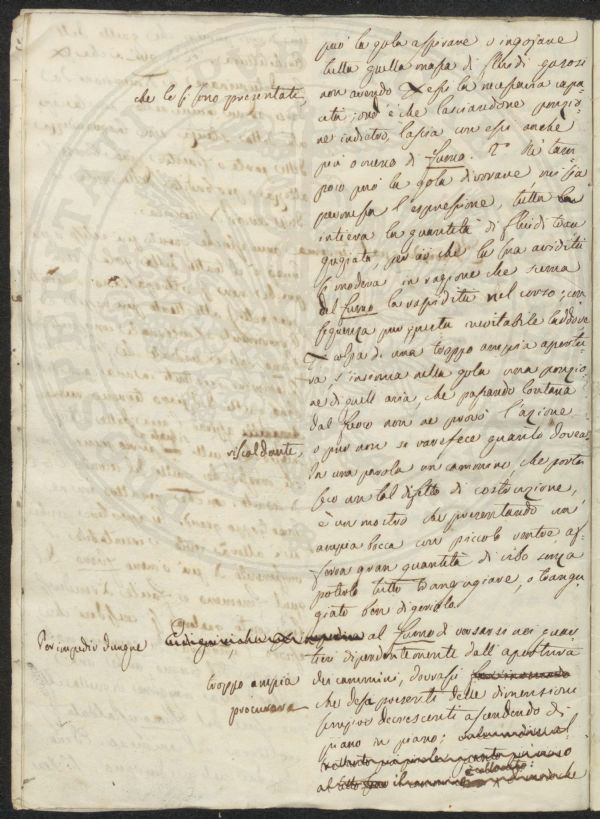 può la gola aspirare o ingojare
tutta quella massa di fluidi gazosi
che le si sono presentate,
non avendo essa la necessaria capa-
cità; ond'è che lasciandone porzio-
ne indietro, lascia con essi anche
più o meno di fumo. Nè tam-
poco può la gola divorare, mi sia
permessa l'espressione, tutta
intiera la quantità di fluidi tran
gugiata, per ciò che la sua avidità
si modera in ragione che scema
del fumo la rapidità nel corso; con
seguenza pur questa inevitabile laddove
colpa di una troppo ampia apertu-
ra, s'insinua nella gola una porzio-
ne di quell'aria, che passando lontana
dal fuoco non ne provò l'azione
riscaldante,
o pur non si rarefece quanto dovea.
In una parola un cammino, che porta
seco un tal difetto di costruzione,
è un mostro che presentando un
ampia bocca con piccolo ventre as-
sorva gran quantità di cibo senza
poterlo tutto trangugiare, o trangu-
giato ben digerirlo.
Per impedir dunque
al fumo di versarsi nei quar-
tieri dipendentemente dall'apertura
troppo ampia
dei cammini, dovrassi
procurare
che dessa presenti delle dimensioni
sempre decrescenti ascendendo di
piano in piano;